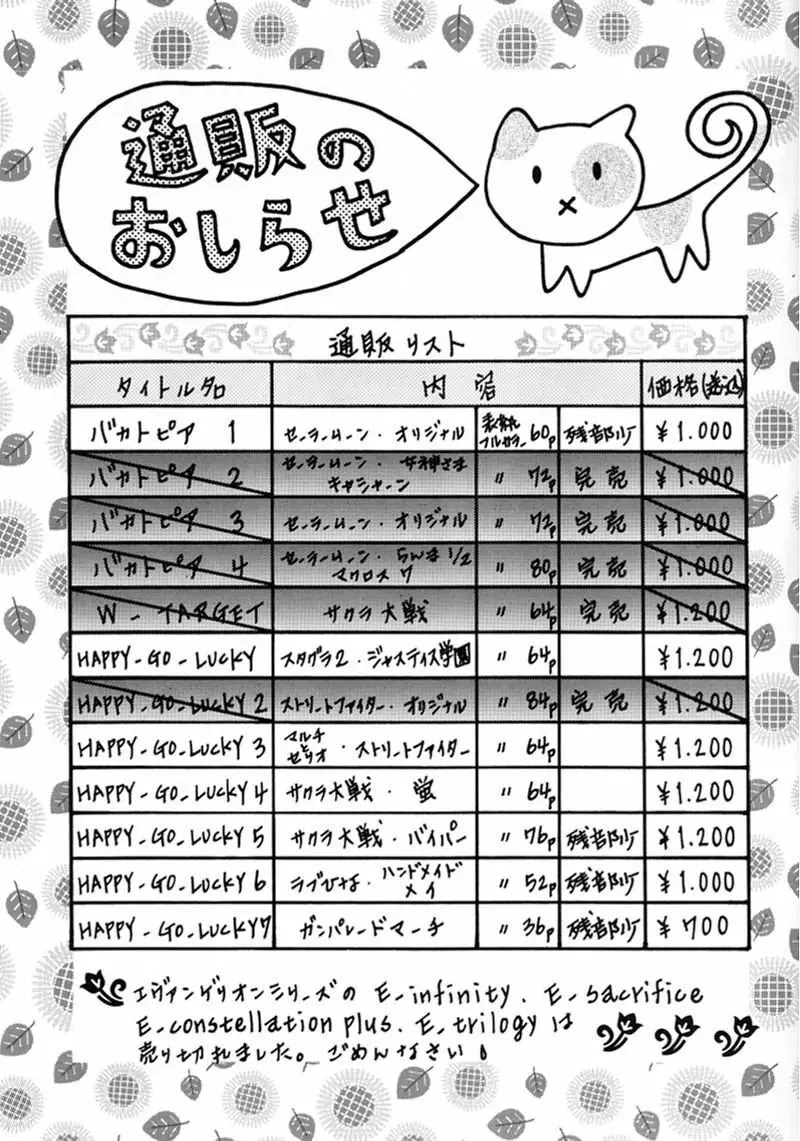 通販の
おしらせ
通販リスト
タイトル名 内容 価格(送込)
バカトピア 1 セーラームーン・オリジナル 表紙フルカラー 60p 残部少 ¥1.000
バカトピア 2 セーラームーン・女神さま キャシャーン 〃 72p 完売 ¥1.000
バカトピア 3 セーラームーン・オリジナル 〃 72p 完売 ¥1.000
バカトピア 4 セーラームーン・らんま1/2 マクロス7 〃 80p 完売 ¥1.000
W-TARGET サクラ大戦 〃 64p 完売 ¥1.200
HAPPY-GO-LUCKY スタグラ2・ジャスティス学園 〃 64p ¥1.200
HAPPY-GO-LUCKY 2 ストリートファイター・オリジナル 〃 84p 完売 ¥1.200
HAPPY-GO-LUCKY 3 マルチとセリオ・ストリートファイター 〃 64p ¥1.200
HAPPY-GO-LUCKY 4 サクラ大戦・蛍 〃 64p ¥1.200
HAPPY-GO-LUCKY 5 サクラ大戦・バイパー 〃 76p 残部少 ¥1.200
HAPPY-GO-LUCKY 6 ラブひな・ハンドメイドメイ 〃 52p 残部少 ¥1.000
HAPPY-GO-LUCKY 7 ガンパレードマーチ 〃 36p 残部少 ¥700
エヴァンゲリオンシリーズの E-infinity. E-sacrifice
E-constellation plus. E-trilogy は
売り切れました。ごめんなさい!